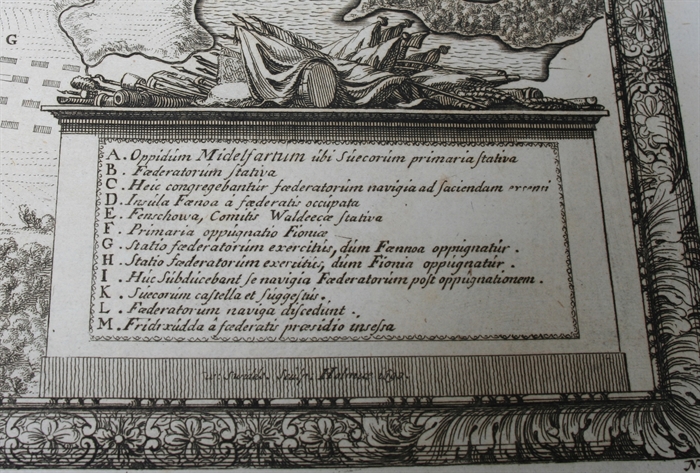 G
A. Oppidúm Midelfartum úbi Súecorúm primaria stativa
B. Fæderatorúm stativa
C. Heic congregebantúr fæderatorúm navigia ad faciendam
D. Insula Fænoa à fæderatis occúpata
E. Fenschowa, Comitis Waldeecæ stativa
F. Primaria oppúgnatio Fioniæ
G. Statio fæderatorúm exercitús, dúm Fænnoa oppúgnatúr.
H. Statio fæderatorúm exercitús, dúm Fionia oppúgnatúr.
I. Húc Súbdúcebant se navigia Fæderatorum post oppúgnationem.
K. Suecorum castella et súggestús.
L. Fæderatorum naviga discedunt.
M. Fridrxúdda à fæderatis præsidio insessa
Sculp. Holmiæ